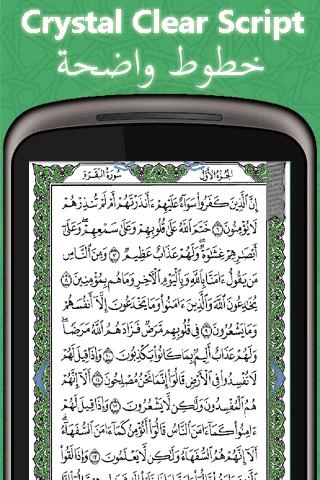 Crystal Clear Script
خطوط واضحة
الجُزءُ الأَوّلُ سُورَةُ البَقَرَةِ
إِنَّ ٱلَّذِينَ كَفَرُوا۟ سَوَآءٌ عَلَيْهِمْ ءَأَنذَرْتَهُمْ أَمْ لَمْ تُنذِرْهُمْ
لَا يُؤْمِنُونَ ٦ خَتَمَ ٱللَّهُ عَلَىٰ قُلُوبِهِمْ وَعَلَىٰ سَمْعِهِمْ ۖ وَعَلَىٰٓ
أَبْصَٰرِهِمْ غِشَٰوَةٌ ۖ وَلَهُمْ عَذَابٌ عَظِيمٌ ٧ وَمِنَ ٱلنَّاسِ
مَن يَقُولُ ءَامَنَّا بِٱللَّهِ وَبِٱلْيَوْمِ ٱلْءَاخِرِ وَمَا هُم بِمُؤْمِنِينَ ٨
يُخَٰدِعُونَ ٱللَّهَ وَٱلَّذِينَ ءَامَنُوا۟ وَمَا يَخْدَعُونَ إِلَّآ أَنفُسَهُمْ
وَمَا يَشْعُرُونَ ٩ فِى قُلُوبِهِم مَّرَضٌ فَزَادَهُمُ ٱللَّهُ مَرَضًا ۖ
وَلَهُمْ عَذَابٌ أَلِيمٌۢ بِمَا كَانُوا۟ يَكْذِبُونَ ١٠ وَإِذَا قِيلَ لَهُمْ
لَا تُفْسِدُوا۟ فِى ٱلْأَرْضِ قَالُوٓا۟ إِنَّمَا نَحْنُ مُصْلِحُونَ ١١ أَلَآ إِنَّهُمْ
هُمُ ٱلْمُفْسِدُونَ وَلَٰكِن لَّا يَشْعُرُونَ ١٢ وَإِذَا قِيلَ لَهُمْ
ءَامِنُوا۟ كَمَآ ءَامَنَ ٱلنَّاسُ قَالُوٓا۟ أَنُؤْمِنُ كَمَآ ءَامَنَ ٱلسُّفَهَآءُ ۗ
أَلَآ إِنَّهُمْ هُمُ ٱلسُّفَهَآءُ وَلَٰكِن لَّا يَعْلَمُونَ ١٣ وَإِذَا لَقُوا۟